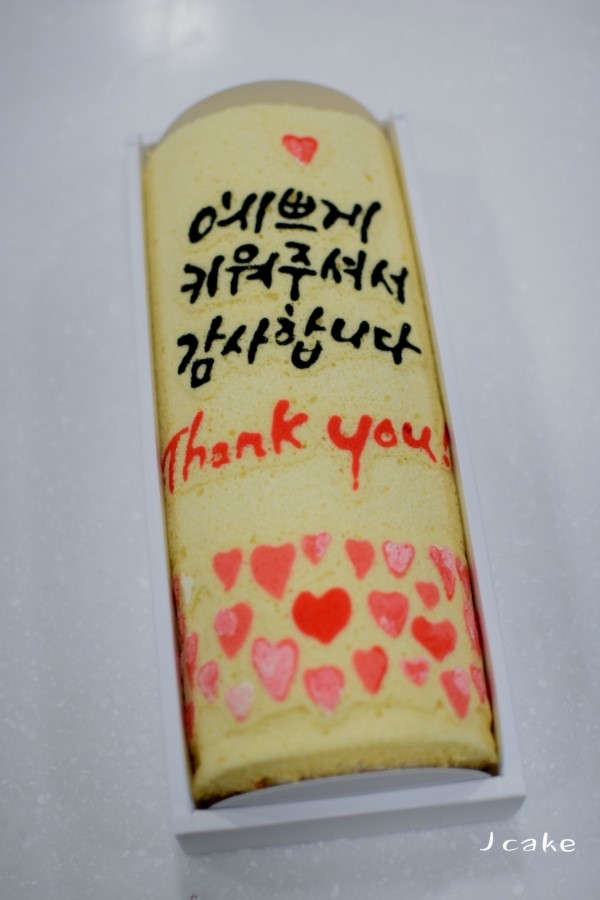 예쁘게
키워주셔서
감사합니다
Thank you!
Jcake